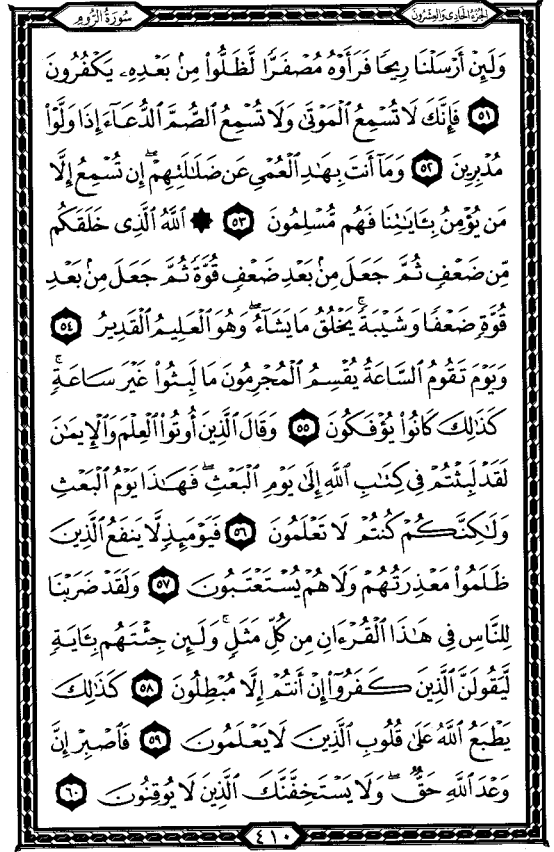 الجزء الحادي والعشرون
سورة الروم
وَلَئِنْ أَرْسَلْنَا رِيحًا فَرَأَوْهُ مُصْفَرًّا لَّظَلُّوا۟ مِنۢ بَعْدِهِۦ يَكْفُرُونَ
٥١ فَإِنَّكَ لَا تُسْمِعُ ٱلْمَوْتَىٰ وَلَا تُسْمِعُ ٱلصُّمَّ ٱلدُّعَآءَ إِذَا وَلَّوْا۟
مُدْبِرِينَ ٥٢ وَمَآ أَنتَ بِهَـٰدِ ٱلْعُمْىِ عَن ضَلَـٰلَتِهِمْ ۖ إِن تُسْمِعُ إِلَّا
مَن يُؤْمِنُ بِـَٔايَـٰتِنَا فَهُم مُّسْلِمُونَ ٥٣ ۞ ٱللَّهُ ٱلَّذِى خَلَقَكُم
مِّن ضَعْفٍ ثُمَّ جَعَلَ مِنۢ بَعْدِ ضَعْفٍ قُوَّةً ثُمَّ جَعَلَ مِنۢ بَعْدِ
قُوَّةٍ ضَعْفًا وَشَيْبَةً ۚ يَخْلُقُ مَا يَشَآءُ ۖ وَهُوَ ٱلْعَلِيمُ ٱلْقَدِيرُ ٥٤
وَيَوْمَ تَقُومُ ٱلسَّاعَةُ يُقْسِمُ ٱلْمُجْرِمُونَ مَا لَبِثُوا۟ غَيْرَ سَاعَةٍ ۚ
كَذَٰلِكَ كَانُوا۟ يُؤْفَكُونَ ٥٥ وَقَالَ ٱلَّذِينَ أُوتُوا۟ ٱلْعِلْمَ وَٱلْإِيمَـٰنَ
لَقَدْ لَبِثْتُمْ فِى كِتَـٰبِ ٱللَّهِ إِلَىٰ يَوْمِ ٱلْبَعْثِ ۖ فَهَـٰذَا يَوْمُ ٱلْبَعْثِ
وَلَـٰكِنَّكُمْ كُنتُمْ لَا تَعْلَمُونَ ٥٦ فَيَوْمَئِذٍ لَّا يَنفَعُ ٱلَّذِينَ
ظَلَمُوا۟ مَعْذِرَتُهُمْ وَلَا هُمْ يُسْتَعْتَبُونَ ٥٧ وَلَقَدْ ضَرَبْنَا
لِلنَّاسِ فِى هَـٰذَا ٱلْقُرْءَانِ مِن كُلِّ مَثَلٍ ۚ وَلَئِن جِئْتَهُم بِـَٔايَةٍ
لَّيَقُولَنَّ ٱلَّذِينَ كَفَرُوٓا۟ إِنْ أَنتُمْ إِلَّا مُبْطِلُونَ ٥٨ كَذَٰلِكَ
يَطْبَعُ ٱللَّهُ عَلَىٰ قُلُوبِ ٱلَّذِينَ لَا يَعْلَمُونَ ٥٩ فَٱصْبِرْ إِنَّ
وَعْدَ ٱللَّهِ حَقٌّ ۖ وَلَا يَسْتَخِفَّنَّكَ ٱلَّذِينَ لَا يُوقِنُونَ ٦٠
٤١٠